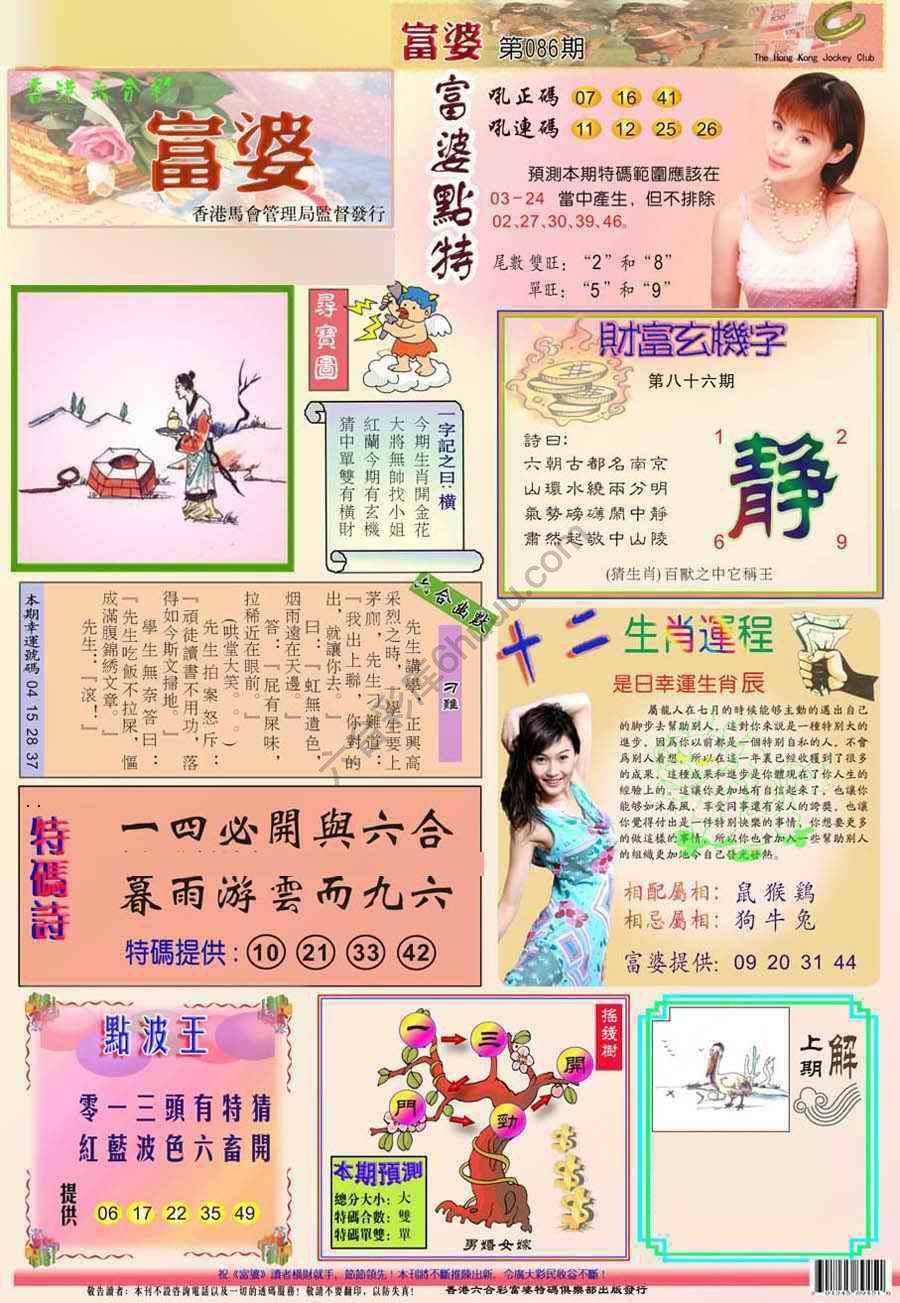 富婆 第086期
The Hong Kong Jockey Club
香港六合彩
富婆
香港馬會管理局監督發行
富婆點特
吼正碼 07 16 41
吼連碼 11 12 25 26
預測本期特碼範圍應該在
03-24 當中產生，但不排除
02、27、30、39、46。
尾數雙旺：“2”和“8”
單旺：“5”和“9”
尋寶圖
一字記之曰：橫
今期生肖開金花
大將無帥找小姐
紅蘭今期有玄機
猜中單雙有橫財
財富玄機字
第八十六期
詩曰：
六朝古都名南京
山環水繞兩分明
氣勢磅礴鬧中靜
肅然起敬中山陵
1 2
靜
6 9
(猜生肖)百獸之中它稱王
六合幽默
刁難
先生講學，正興高
采烈之時，學生要上
茅廁，先生刁難道：
『我出上聯，你對的
出，就讓你去。』
曰：『虹無遺色，
烟雨遠在天邊。』
答：『屁有屎味，
拉稀近在眼前。』
(哄堂大笑。。。)
先生拍案怒斥：
『頑徒讀書不用功，落
得如今斯文掃地。』
學生無奈答曰：
『先生吃飯不拉屎，憋
成滿腹錦綉文章。』
先生：『滾！』
本期幸運號碼 04 15 28 37
十二生肖運程
是日幸運生肖 辰
屬龍人在七月的時候能够主動的邁出自己
的脚步去幫助別人，這對你來說是一種特別大的
進步，因爲你以前都是一個特別自私的人，不會
爲別人着想，所以在這一年裏已經收穫到了很多
的成果，這種成果和進步是你體現在了你人生的
經驗上的。這讓你更加地有自信起來了，也讓你
能够如沐春風，享受同事還有家人的誇奬，也讓你
你覺得付出是一件特別快樂的事情，你想要更多
的做這樣的事情，所以你也會加入一些幫助別人
的組織更加地令自己發光發熱。
相配屬相：鼠 猴 鷄
相忌屬相：狗 牛 兔
富婆提供：09 20 31 44
特碼詩
一四必開與六合
暮雨游雲而九六
特碼提供：10 21 33 42
點波王
零一三頭有特猜
紅藍波色六畜開
提供 06 17 22 35 49
搖錢樹
一 三 開
門 勁
本期預測
總分大小：大
特碼合數：雙
特碼單雙：單
男婚女嫁
上期解
祝《富婆》讀者橫財就手，節節領先！本刊將不斷推陳出新，令廣大彩民收益不斷！
敬告讀者：本刊不設咨詢電話以及一切的透碼服務！敬請不要翻印，以防失真！
香港六合彩富婆特碼俱樂部出版發行
六合彩库6hhuu.com